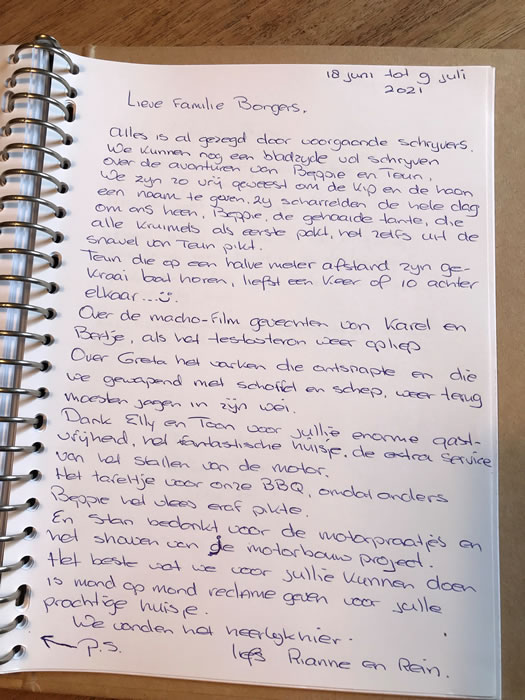 18 juni tot 9 juli
2021
Lieve Familie Borgers,
Alles is al gezegd door voorgaande schryvers.
We kunnen nog een bladzyde vol schryven
over de avonturen van Beppie en Teun.
We zyn zo vrij geweest om de kip en de haan
een naam te geven, zy scharrelden de hele dag
om ons heen, Beppie, de gehaaide tante, die
alle kruimels als eerste pakt, het zelfs uit de
snavel van Teun pikt.
Teun die op een halve meter afstand zyn ge-
kraai laat horen, liefst een keer of 10 achter
elkaar...
Over de macho-film gevechten van Karel en
Bertje, als het testosteron weer opliep
Over Greta het varken die ontsnapte en die
we gewapend met schoffel en schep, weer terug
moesten jagen in zijn wei.
Dank Elly en Toon voor jullie enorme gast-
vrijheid, het fantastische huisje, de extra service
van het stallen van de motor.
Het tafeltje voor onze BBQ, omdat anders
Beppie het vlees eraf pikte.
En Stan bedankt voor de motorpraatjes en
het showen van de motorbouw project.
Het beste wat we voor jullie kunnen doen
is mond op mond reclame geven voor jullie
prachtige huisje.
We vonden het heerlyk hier.
← p.s. liefs Rianne en Rein.